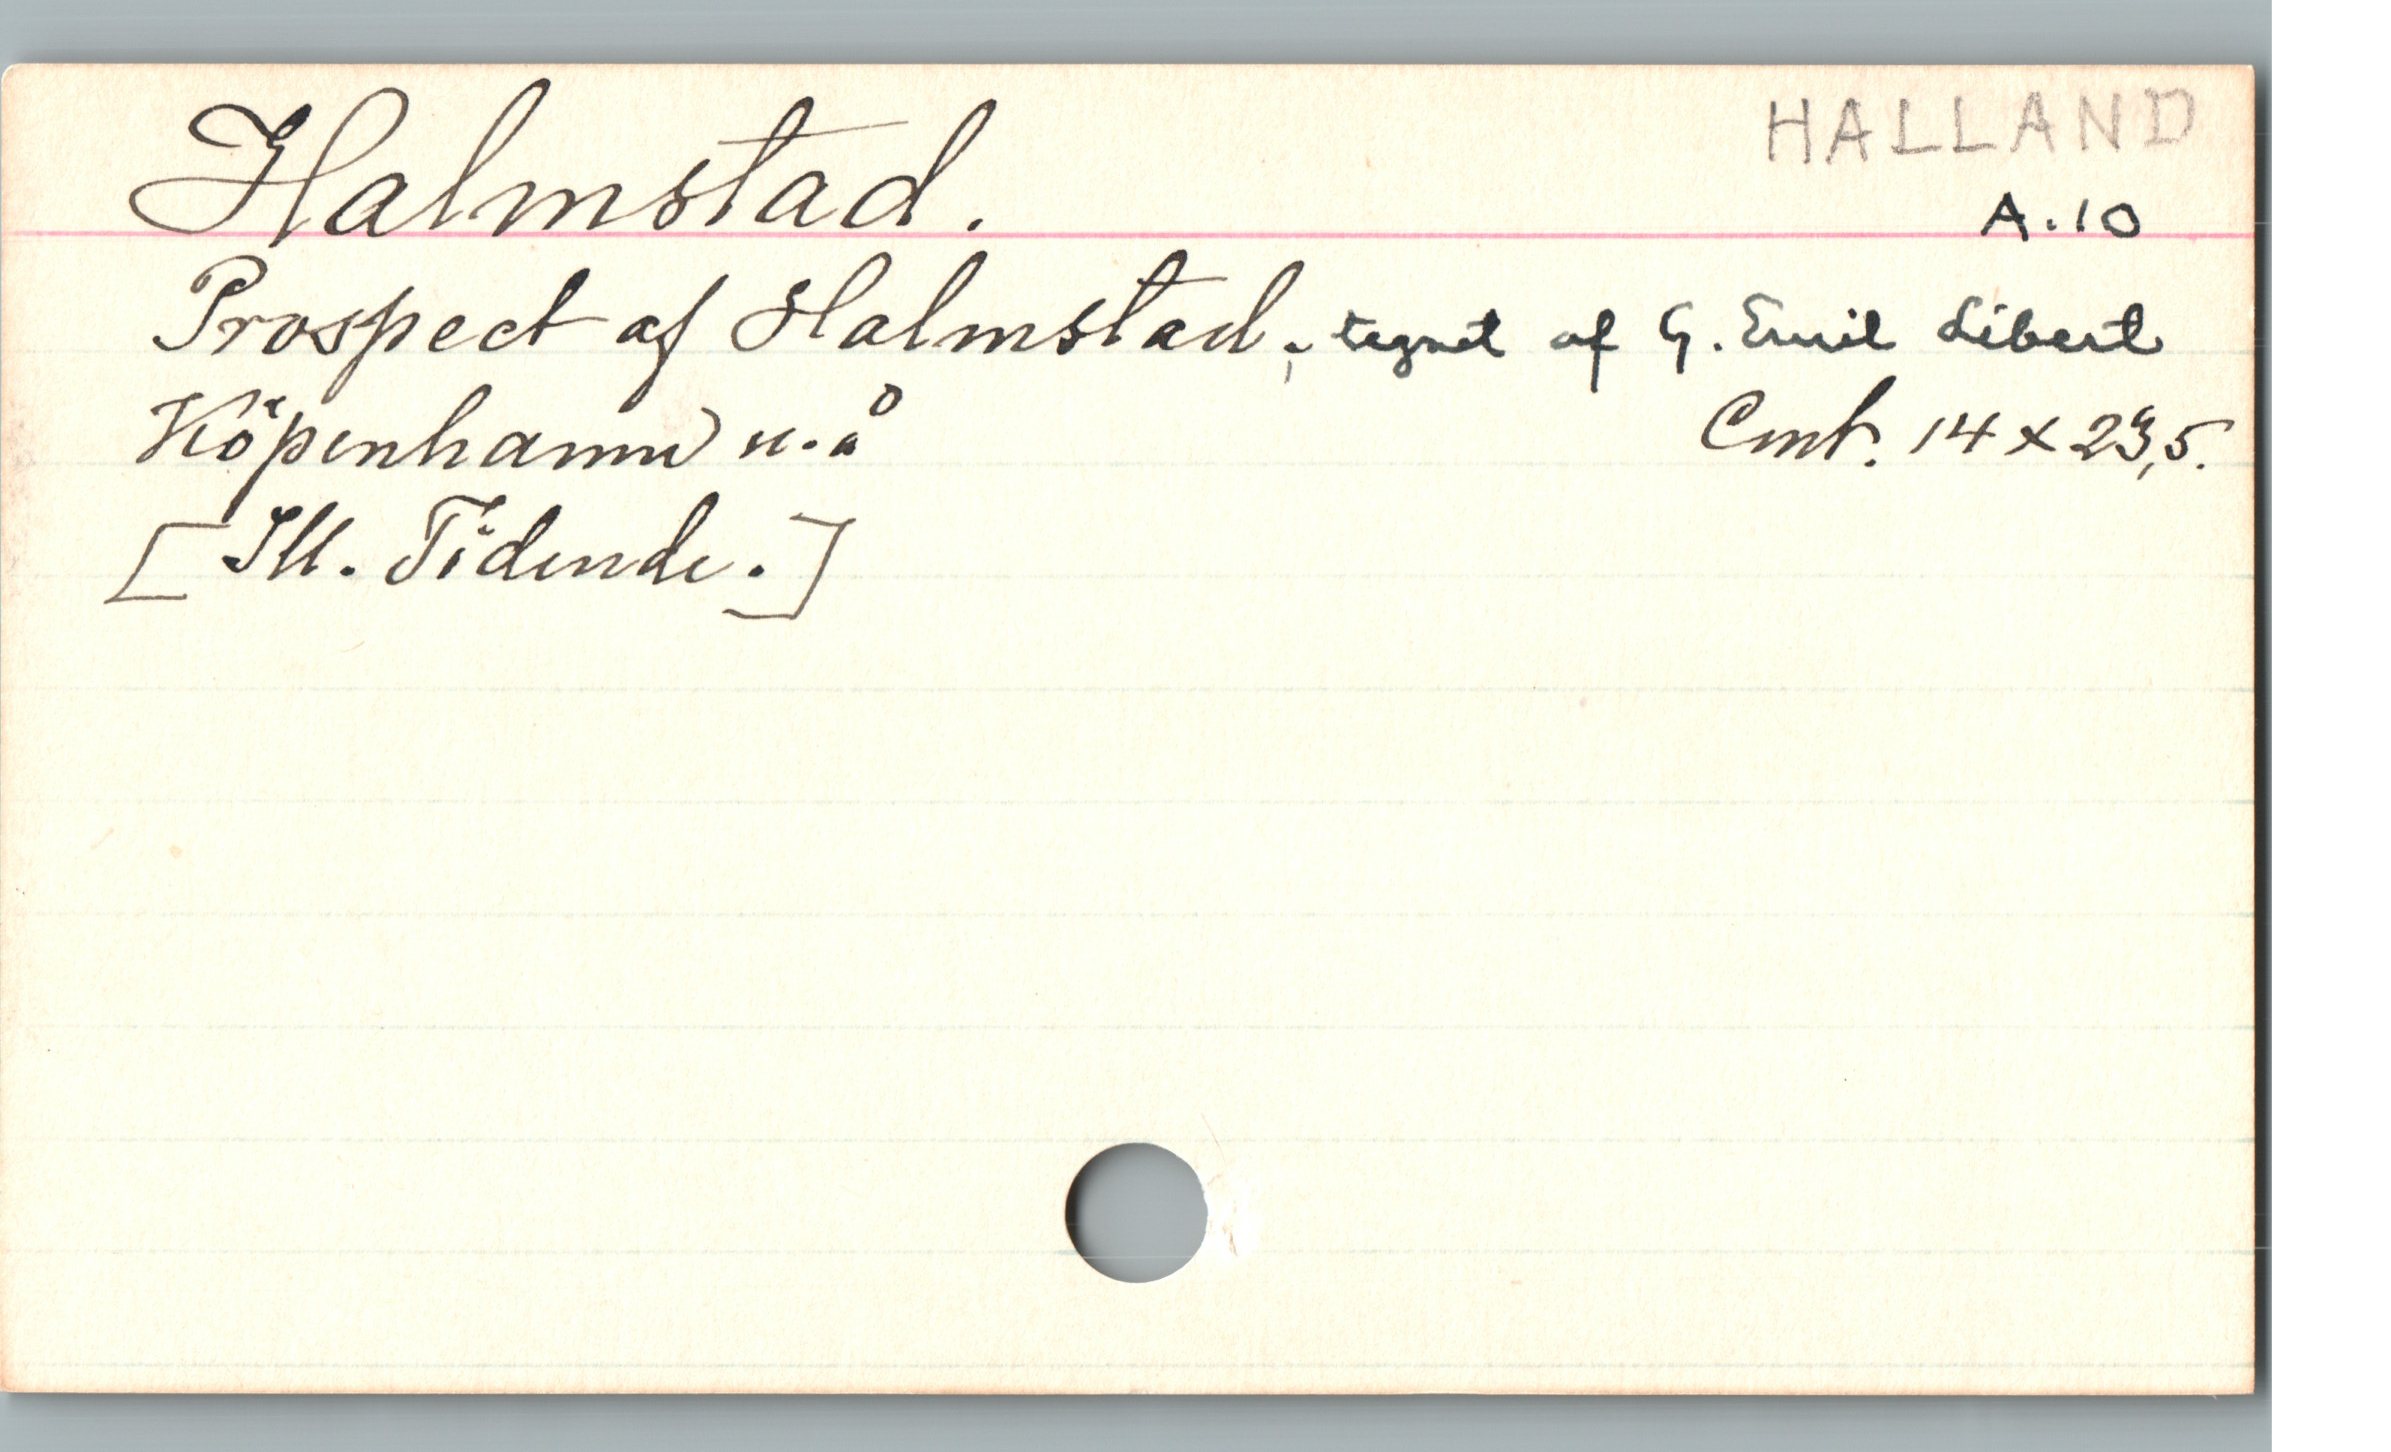 HALLAND
Halmstad.
A.10
Prospect af Halmstad, tegnet af G. Emil Libert
Köpenhamn u.å
Cmt. 14 x 23,5.
[Ill. Tidende.]